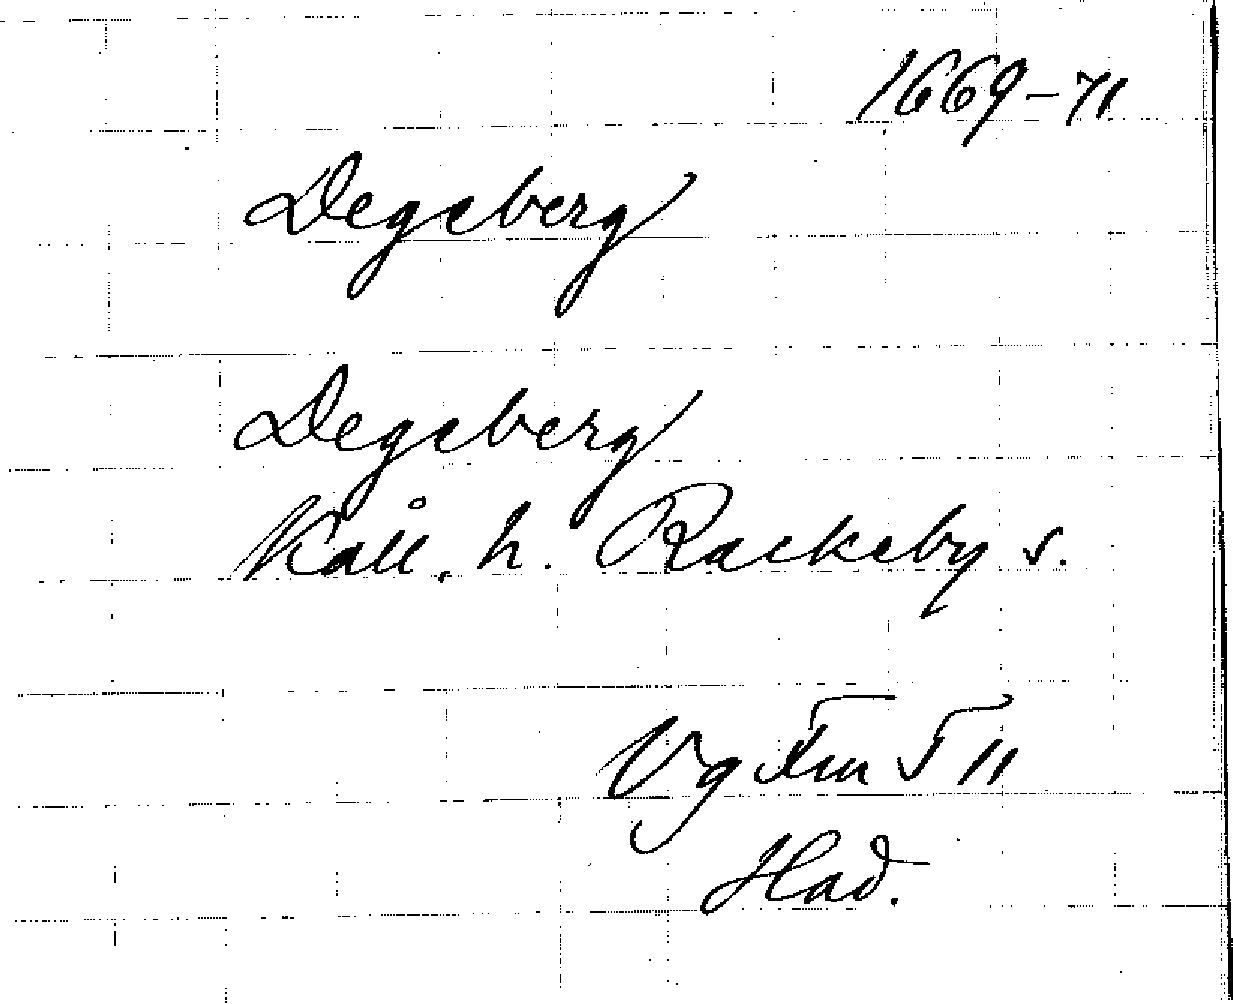 1669-71
Degeberg
Degeberg
Kåll. h. Rackeby s.
Vg Fm 5 11
Had.